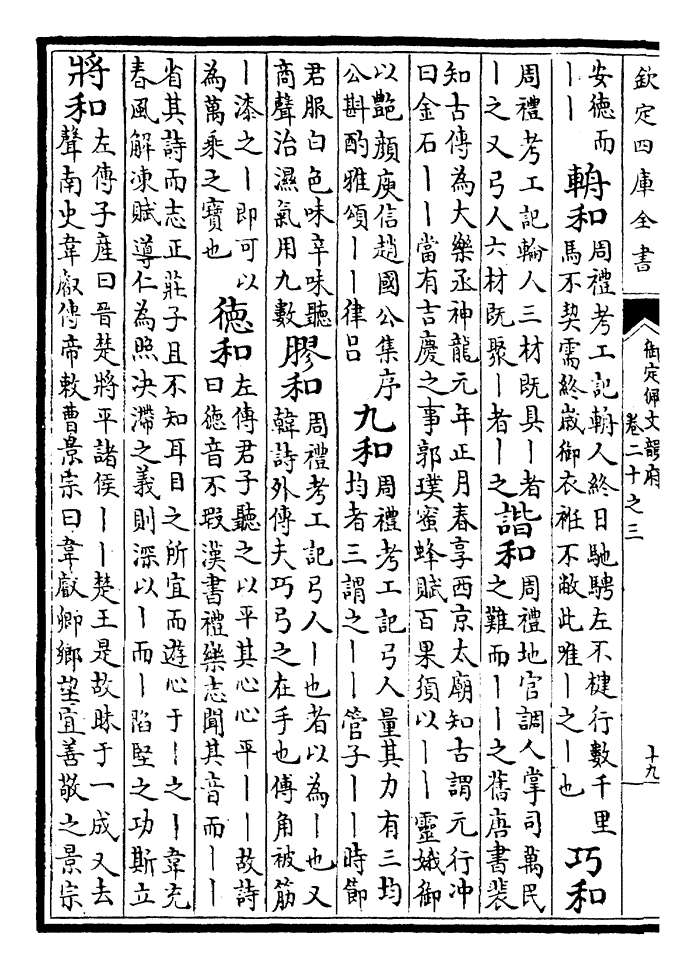 欽定四庫全書
御定佩文韻府
卷二十之三
十九
安德而
丨丨
輈和
周禮考工記輈人終日馳騁左不楗行數千里
馬不契需終歲御衣衽不敝此唯丨之丨也
巧和
周禮考工記輪人三材既具丨者
丨之又弓人六材既聚丨者丨之
諧和
周禮地官調人掌司萬民
之難而丨丨之舊唐書裴
知古傳為大樂丞神龍元年正月春享西京太廟知古謂元行冲
曰金石丨丨當有吉慶之事郭璞蜜蜂賦百果須以丨丨靈娥御
以艷顔庾信趙國公集序
公斟酌雅頌丨丨律吕
九和
周禮考工記弓人量其力有三均
均者三謂之丨丨管子丨丨時節
君服白色味辛味聽
商聲治濕氣用九數
膠和
周禮考工記弓人丨也者以為丨也又
韓詩外傳夫巧弓之在手也傅角被筋
丨漆之丨即可以
為萬乘之寶也
德和
左傳君子聽之以平其心心平丨丨故詩
曰德音不瑕漢書禮樂志聞其音而丨丨
省其詩而志正莊子且不知耳目之所宜而遊心于丨之丨韋充
春風解凍賦導仁為照决滯之義則深以丨而丨陷堅之功斯立
將和
左傳子產曰晉楚將平諸侯丨丨楚王是故昧于一成又去
聲南史韋叡傳帝敕曹景宗曰韋叡卿鄉望宜善敬之景宗